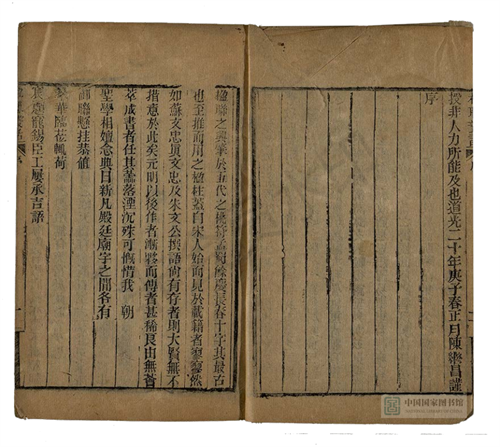 授非人力所能及也道光二十年庚子春正月陳繼昌謹
序
楹聯之興肇於五代之桃符孟蜀餘慶長春十字其最古
也至推而用之楹柱蓋自宋人始而見於載籍者寥寥然
如蘇文忠眞文忠及朱文公撰語尚有存者則大賢無不
措意於此矣元明以後作者漸夥而傳者甚稀良由無薈
萃成書者任其零落湮沉殊可慨惜我 朝
聖學相嬗念典日新凡殿廷廟宇之間各有
御聯懸挂恭值
翠華臨莅輒荷
宸題寵錫臣工屢承吉語
中国国家图书馆